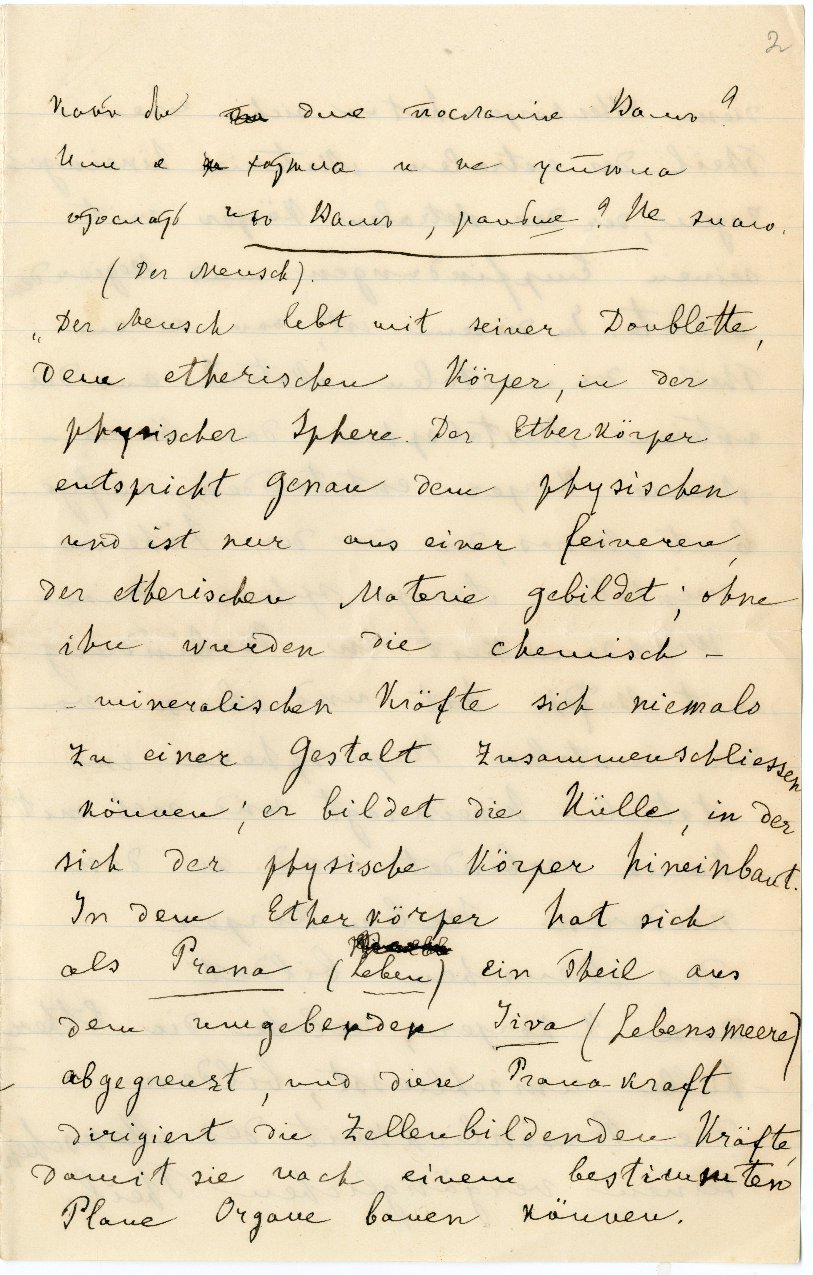 2
для посланіе Вамъ?
Или е ходила и не успѣла
отослать его Вамъ, раньше? Не знаю.
(Der Mensch).
„Der Mensch lebt mit seiner Doublette,
dem etherischen Körper, in der
physischer Sphere. Der Etherkörper
entspricht genau dem physischen
und ist nur aus einer feineren,
der etherischen Materie gebildet; ohne
ihn wurden die chemisch -
- mineralischen Kräfte sich niemals
zu einer Gestalt zusammenschliessen
können; er bildet die Hülle, in der
sich der physische Körper hineinbaut.
In dem Etherkörper hat sich
als Prana (Leben) ein Theil aus
dem umgebenden Jiva (Lebensmeere)
abgegrenzt, und diese Pranakraft
dirigiert die Zellenbildenden Kräfte,
damit sie nach einem bestimmten
Plane Organe bauen können.